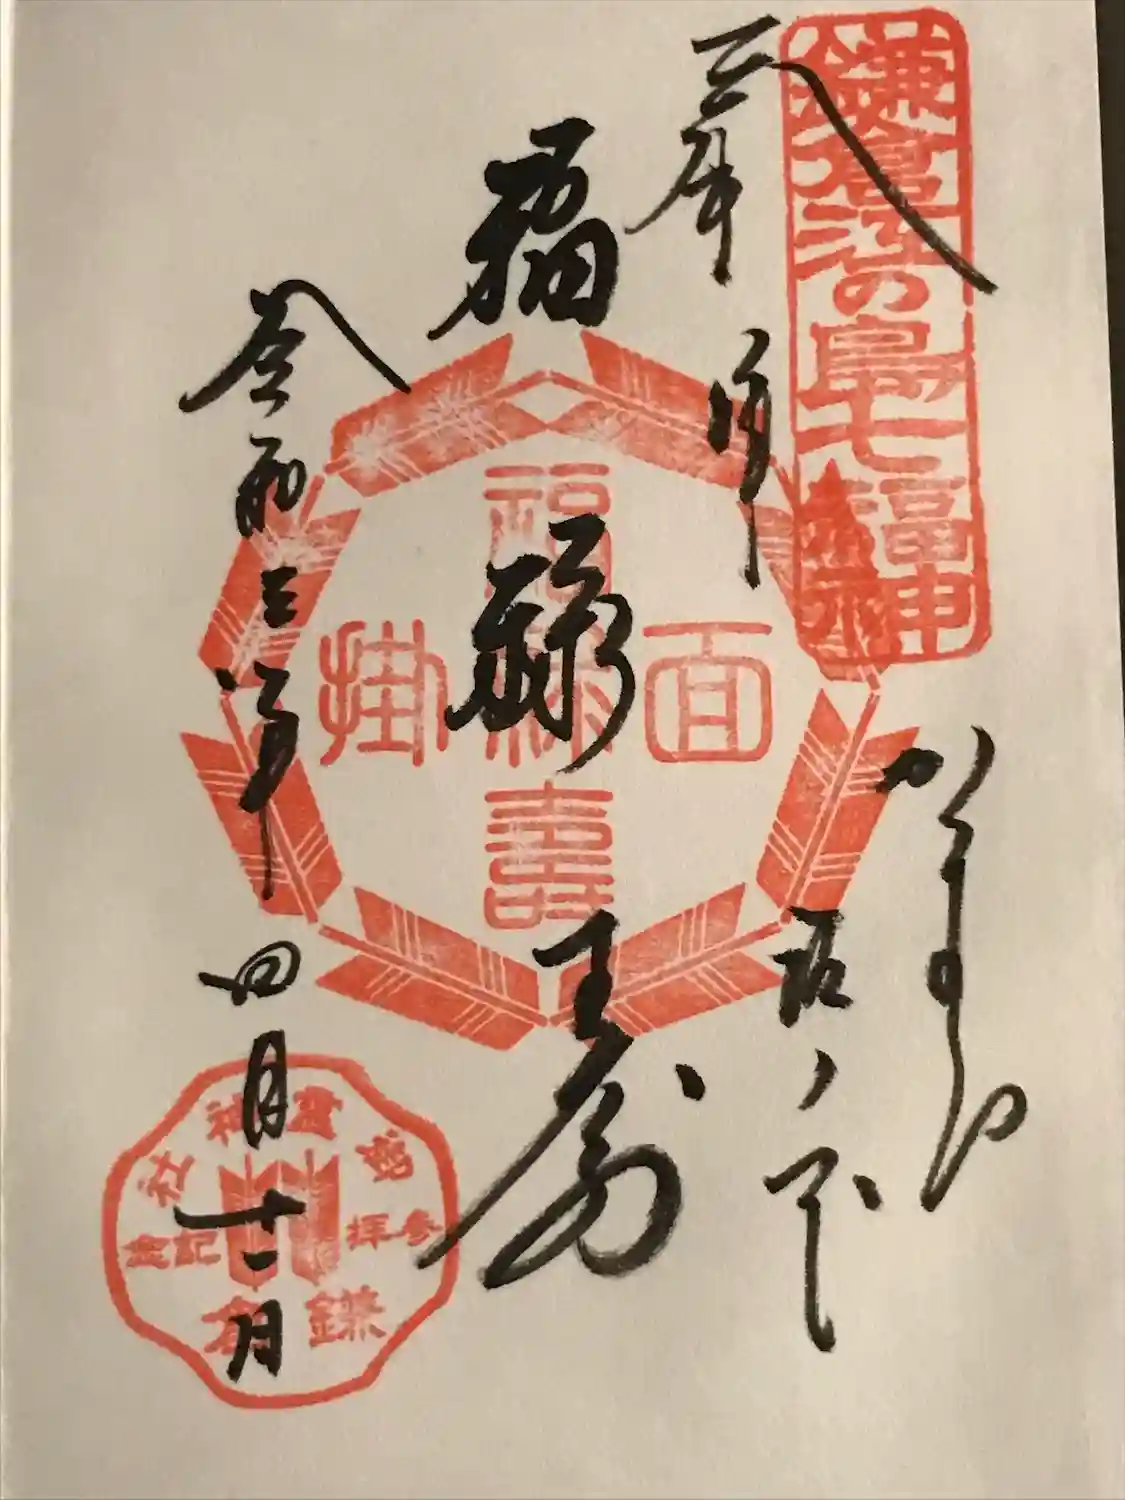 鎌倉江の島七福神
かまくら
坂ノ下
福禄寿
面掛
福禄寿
令和三年四月十一日
御霊神社
参拝記念
鎌倉